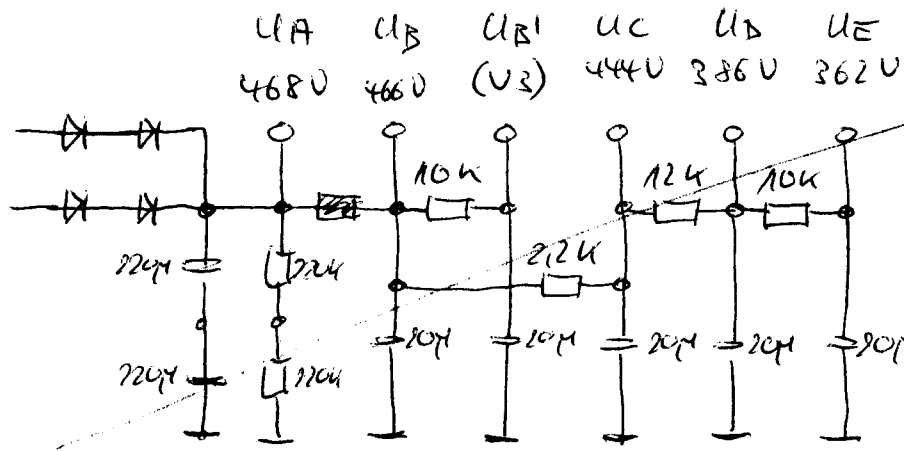 UA UB UB' UC UD UE
468V 466V (V3) 444V 386V 362V
10K 12K 10K
2,2K
220µ 220K
20µ 20µ 20µ 20µ 20µ
220µ 220K